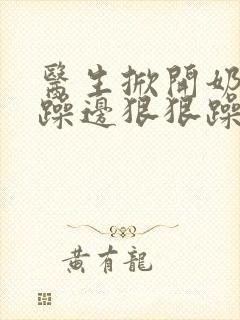 醫生掀開奶
躁邊狠狠躁
黃有龍